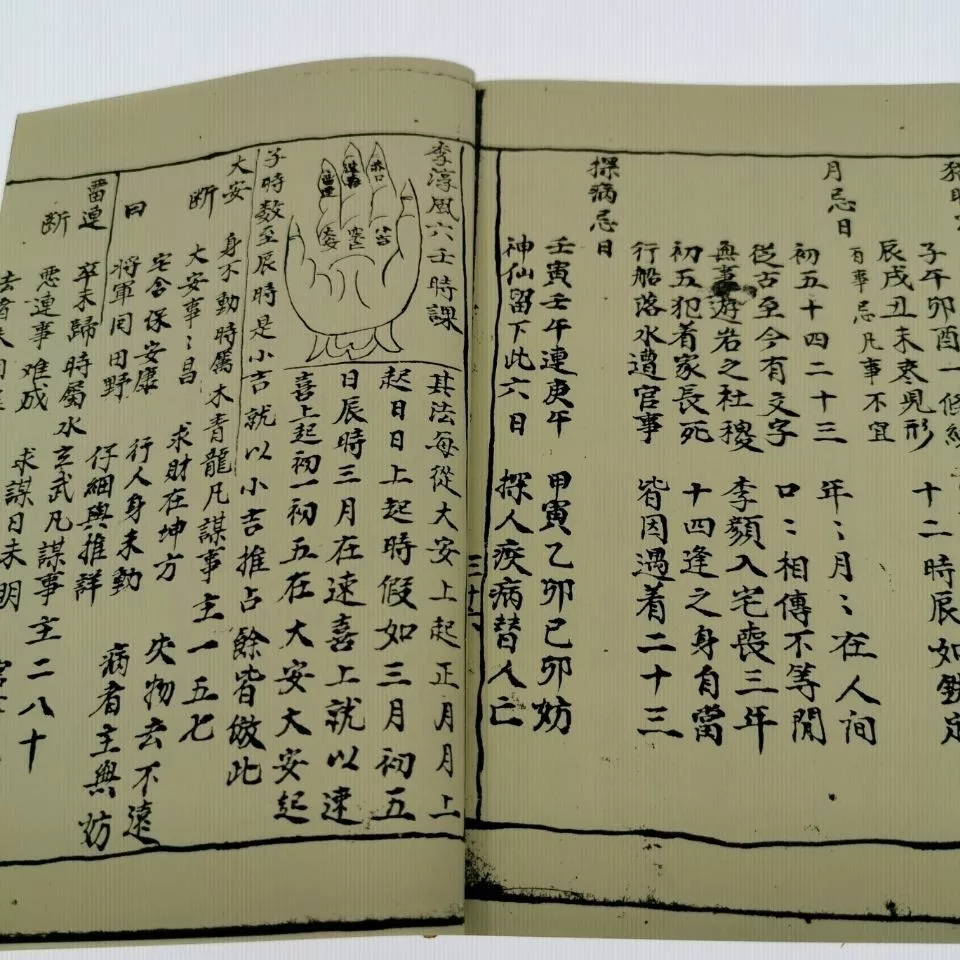 子午卯酉一條
十二時辰如鉄定
辰戌丑未枣見形
月忌日
百事忌凡事不宜
年〻月〻在人间
初五十四二十三
口〻相傳不等閒
從古至今有文字
李顏入宅喪三年
無事遊岩之社稷
十四逢之身自當
初五犯着家長死
皆因遇着二十三
行船落水遭官事
探病忌日
壬寅壬午連庚午
甲寅乙卯己卯妨
神仙留下此六日
探人疾病替人亡
三十六
李淳風六壬時課
赤口
小吉
留連
速喜
大安
其法每從大安上起正月月上
起日日上起時假如三月初五
日辰時三月在速喜上就以速
喜上起初一初五在大安大安起
子時数至辰時是小吉就以小吉推占餘皆倣此
大安
身不動時屬木青龍凡謀事主一五七
断
大安事〻昌
求財在坤方
失物去不遠
曰
宅舍保安康
行人身未動
病者主無妨
將軍囘田野
仔細與推詳
畱連
卒未歸時屬水玄武凡謀事主二八十
断
畱連事难成
求謀日未明